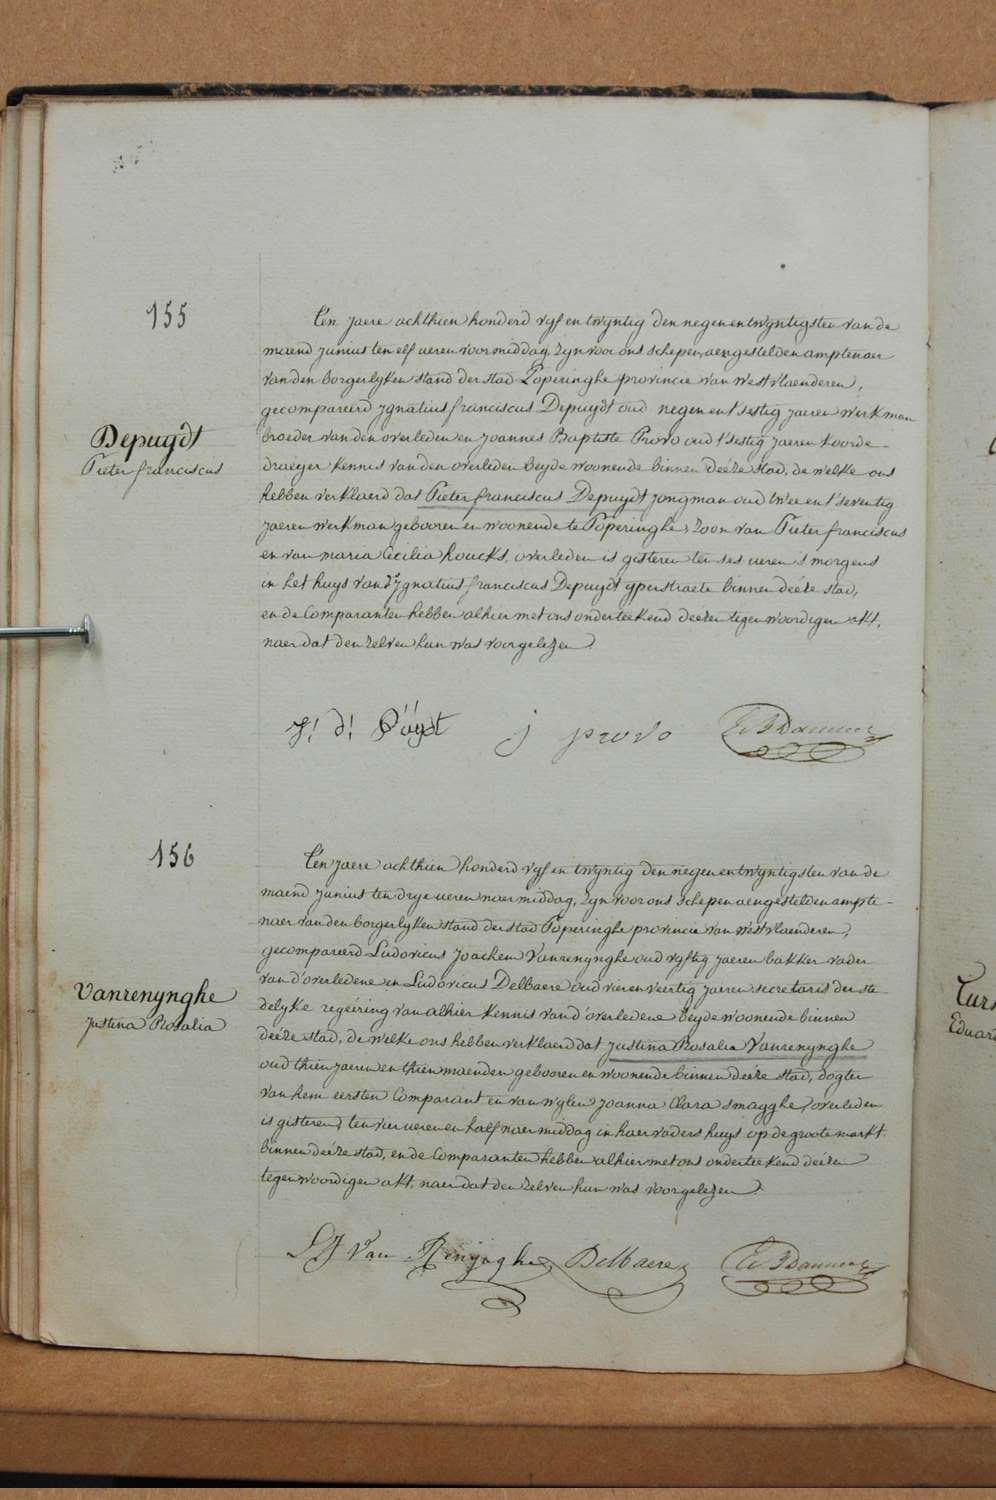 155
Depuydt
Pieter franciscus
Ten jaere achthien honderd vyf en twyntig den negenentwyntigsten van de
maend junius ten elf ueren voormiddag, zyn voor ons schepen, aengestelden amptenaer
van den borgerlyken stand der stad Poperinghe provincie van westvlaenderen,
gecompareerd jgnatius franciscus Depuydt oud negen en t'sestig jaeren werkman
broeder van den overleden en joannes Baptiste Provo oud t'sestig jaeren koorde-
draeger kennis van den overleden beyde woonende binnen deéze stad, de welke ons
hebben verklaerd dat Pieter franciscus Depuydt jongman oud twee en t'seventig
jaeren werkman gebooren en woonende te Poperinghe, zoon van Pieter franciscus
en van maria Cecilia houcks, overleden is gisteren ten ses ueren 's morgens
in het huys van d'jgnatius franciscus Depuydt yperstraete binnen deéze stad,
en de Comparanten hebben alhier met ons onderteekend deezen tegenwoordigen akt,
naer dat den zelven hun was voorgelezen.
j provo
156
Vanrenynghe
justina Rosalia
Ten jaere achthien honderd vyf en twyntig den negenentwyntigsten van de
maend junius ten drye ueren naermiddag, zyn voor ons schepen aengestelden ampte-
naer van den borgerlyken stand der stad Poperinghe provincie van westvlaenderen,
gecompareerd Ludovicus joachem Vanrenynghe oud vyftig jaeren bakker vader
van d'overledene en Ludovicus Delbaere oud vier en veertig jaeren secretaris der ste
delyke regéiring van alhier kennis van d'overledene beyde woonende binnen
deéze stad, de welke ons hebben verklaerd dat justina Rosalia Vanrenynghe
oud thien jaeren en thien maenden gebooren en woonende binnen deéze stad, dogter
van hem eersten Comparant en van wylen joanna Clara smagghe, overleden
is gisteren, ten vier ueren en half naermiddag in haer vaders huys op de groote markt
binnen deéze stad, en de Comparanten hebben alhier met ons onderteekend deézen
tegenwoordigen akt, naer dat den zelven hun was voorgelezen.
LJ Van Renynghe Delbaere